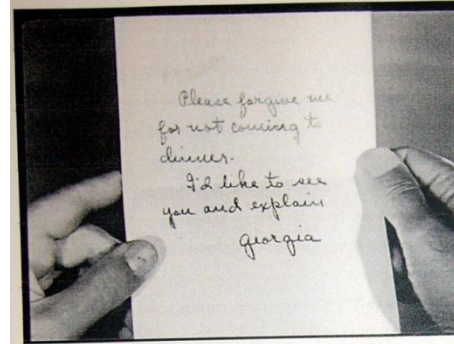 Please forgive me
for not coming to
dinner.
I'd like to see
you and explain
Georgia